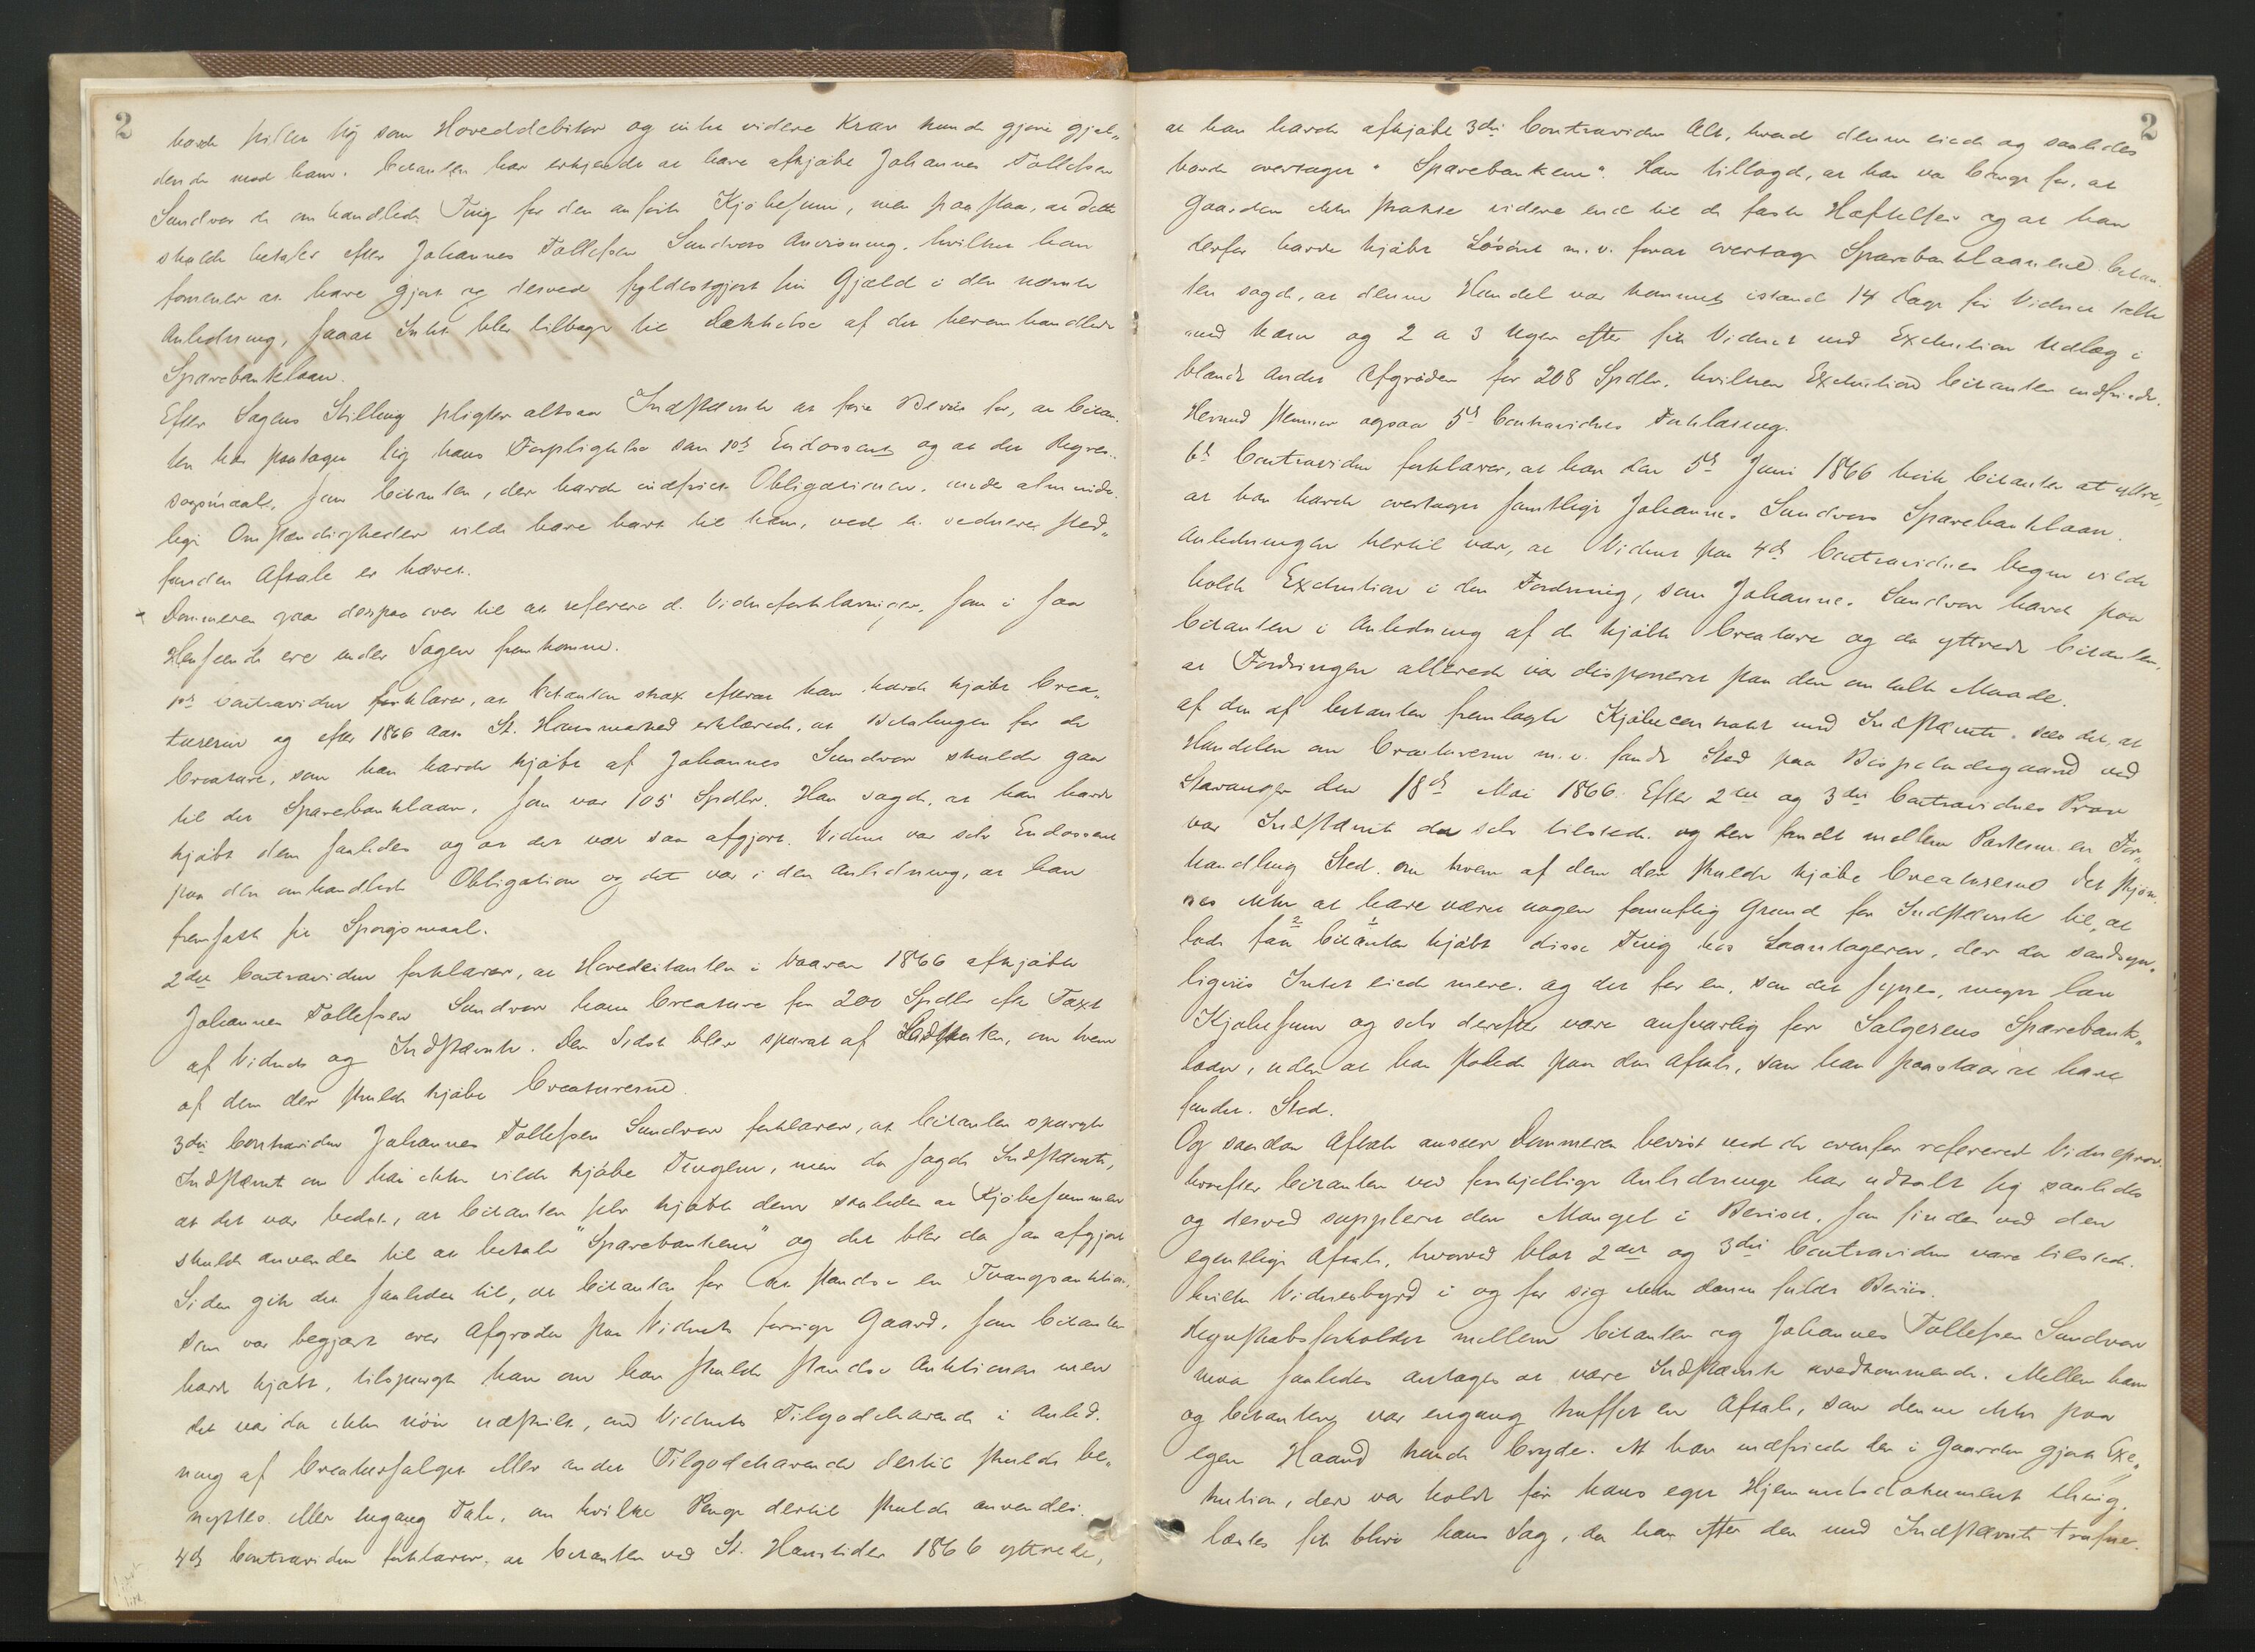 2
havde stillet sig som Hoveddebitor og ikke videre Krav kunde gjøre gjæl„
dende mod ham. Citanten har erkjendt at have afkjøbt Johannes Tollefsen
Sundvor de omhandlede Ting for den anførte Kjøbesum, men paastaar, at dette
skulde betales efter Johannes Tollefsen Sundvors Anvisning, hvilket han
formener at have gjort og derved fyldestgjort sin Gjæld i den nævnte
Anledning, saaat Intet blev tilbage til Dækkelse af det heromhandlede
Sparebanklaan.
Efter Sagens Stilling pligter altsaa Indstævnte at føre Beviis for, at Citan„
ten har paataget sig hans Forpligtelse som 1ste Endossent og at det Regres„
søgsmaal, som Citanten, der havde indfriet Obligationen, under alminde„
lige Omstændigheder vilde have havt til ham, ved en vedkommende sted„
funden Aftale er hævet.
Dommeren gaar derpaa over til at referere de Vidneforklaringer, som i saa
Henseende ere under Sagen fremkomne.
1ste Contravidne forklarer, at Citanten strax efterat han havde kjøbt Crea„
turerne og efter 1866 Aars St. Hansmarked erklærede, at Betalingen for de
Creature, som han havde kjøbt af Johannes Sundvor skulde gaa
til det Sparebanklaan, som var 105 Spdlr. Han sagde, at han havde
kjøbt dem saaledes og at det var saa afgjort. Vidnet var selv Endossent
paa den omhandlede Obligation og det var i den Anledning, at han
fremsatte sit Spørgsmaal.
2det Contravidne forklarer, at Hovedcitanten i Vaaren 1866 afkjøbte
Johannes Tollefsen Sundvor hans Creature for 200 Spdlr efter Taxt
af Vidnet og Indstævnte. Den Sidste blev spurat af Citanten, om hvem
af dem der skulde kjøbe Creaturerne.
3die Contravidne Johannes Tollefsen Sundvor forklarer, at Citanten spurgte
Indstævnte om han ikke vilde kjøbe Tingene, men da sagde Indstævnte,
at det var bedst, at Citanten selv kjøbte dem saaledes at Kjøbesummen
skulde anvendes til at betale "Sparebankene" og det blev da saa afgjort.
Siden gik det saaledes til, at Citanten for at standse en Tvangsauktion,
som var begjært over Afgrøden paa Vidnets forrige Gaard, som Citanten
havde kjøbt, tilspurgte ham om han skulde standse Auktionen men
det var da ikke nøie udtrykt, om Vidnets Tilgodehavende i Anled„
ning af Creatursalget eller andet Tilgodehavende dertil skulde be„
nyttes eller engang Tale, om hvilke Penge dertil skulde anvendes.
4de Contravidne forklarer, at Citanten ved St. Hanstider 1866 yttrede,
2
at han havde afkjøbt 3die Contravidne Alt, hvad denne eiede og saaledes
havde overtaget "Sparebankene". Han tillagde, at han var bange for, at
Gaarden ikke strakte videre end til de faste Hæftelser og at han
derfor havde kjøbt Løsøret m.v. forat overtage Sparebanklaanene. Citan„
ten sagde, at denne Handel var kommet istand 14 Dage før Vidnet talte
med ham og 2 a 3 Uger efter fik Vidnet ved Execution Udlæg i
blandt Andet Afgrøden for 208 Spdlr. hvilken Execution Citanten indfriede.
Hermed stemmer ogsaa 5te Contravidnes Forklaring.
6te Contravidne forklarer, at han den 5te Juni 1866 hørte Citanten at yttre,
at han havde overtaget samtlige Johannes Sundvors Sparebanklaan.
Anledningen hertil var, at Vidnet paa 4de Contravidnes Vegne vilde
holde Execution i den Fordring, som Johannes Sundvor havde paa
Citanten i Anledning af de kjøbte Creature og da yttrede Citanten,
at Fordringen allerede var disponeret paa den omtalte Maade.
Af den af Citanten fremlagte Kjøbecontrakt med Indstævnte sees det, at
Handelen om Creaturerne m.v. fandt Sted paa Bispeladegaard ved
Stavanger den 18de Mai 1866. Efter 2det og 3die Contravidnes Prov
var Indstævnte da selv tilstede og der fandt mellem Parterne en For„
handling Sted, om hvem af dem der skulde kjøbe Creaturerne. Det skjøn„
nes ikke at have været nogen fornuftig Grund for Indstævnte til, at
lade saa Citanten kjøbt disse Ting hos Laantageren, der da sandsyn„
ligviis Intet eiede mere, og det for en, som det synes, meget lav
Kjøbesum og selv derefter være ansvarlig for Sælgerens Sparebank„
laan, uden at han stolede paa den Aftale, som han paastaar at have
fundet Sted.
Og saadan Aftale anseer Dommeren bevist ved de ovenfor refererede Vidneprov,
hvorefter Citanten ved forskjellige Anledninger har udtalt sig saaledes
og derved supplere den Mangel i Beviset, som findes ved den
egentlige Aftale, hvorved blot 2det og 3die Contravidne vare tilstede,
hvilke Vidnesbyrd i og for sig ikke danne fuldt Beviis.
Regnskabsforholdet mellem Citanten og Johannes Tollefsen Sundvor
maa saaledes antages at være Indstævnte uvedkommende. Mellem ham
og Citanten var engang truffet en Aftale, som denne ikke paa
egen Haand kunde bryde. At han indfriede den i Gaarden gjorte Exe„
kution, der var holdt før hans eget Hjemmelsdokument thing„
læstes fik blive hans Sag, da han efter den med Indstævnte trufne